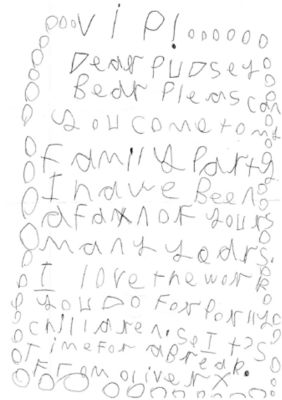 VIP!
Dear PUDSey
Bear Pleas can
you come to my
Family Party
I have Been
a fan of yours
many years.
I love the work
you DO For
children. So It's
Time For a Break.
From oliver x